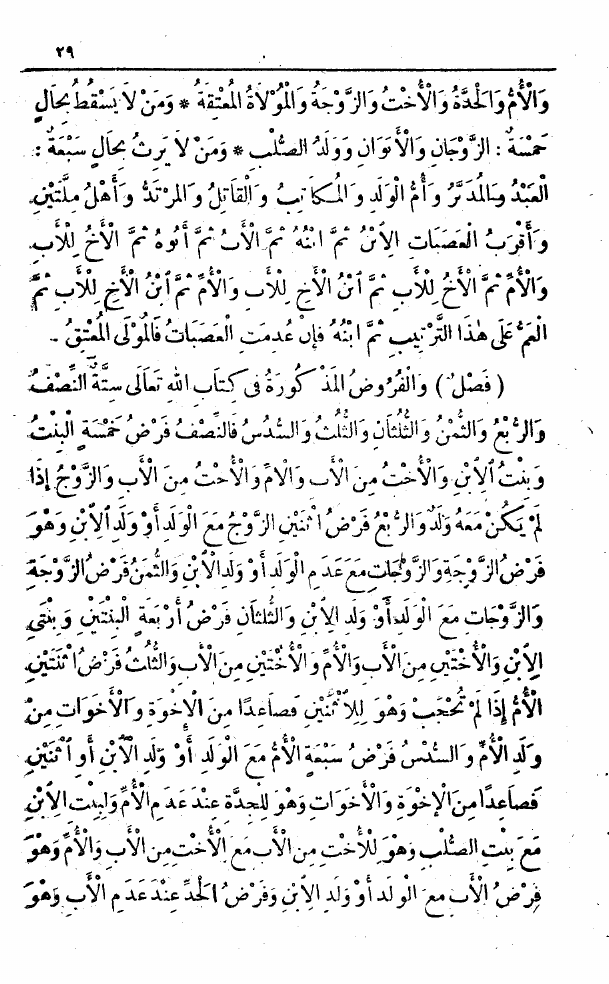 ٢٩
وَالْأُمُّ وَالْجَدَّةُ وَالْأُخْتُ وَالزَّوْجَةُ وَالْمَوْلَاةُ الْمُعْتِقَةُ * وَمَنْ لَا يَسْقُطُ بِحَالٍ
خَمْسَةٌ : الزَّوْجَانِ وَالْأَبَوَانِ وَوَلَدُ الصُّلْبِ * وَمَنْ لَا يَرِثُ بِحَالٍ سَبْعَةٌ :
الْعَبْدُ وَالْمُدَبَّرُ وَأُمُّ الْوَلَدِ وَالْمُكَاتَبُ وَالْقَاتِلُ وَالْمُرْتَدُّ وَأَهْلُ مِلَّتَيْنِ
وَأَقْرَبُ الْعَصَبَاتِ الِابْنُ ثُمَّ ابْنُهُ ثُمَّ الْأَبُ ثُمَّ أَبُوهُ ثُمَّ الْأَخُ لِلْأَبِ
وَالْأُمِّ ثُمَّ الْأَخُ لِلْأَبِ ثُمَّ ابْنُ الْأَخِ لِلْأَبِ وَالْأُمِّ ثُمَّ ابْنُ الْأَخِ لِلْأَبِ ثُمَّ
الْعَمُّ عَلَى هٰذَا التَّرْتِيبِ ثُمَّ ابْنُهُ فَإِنْ عُدِمَتِ الْعَصَبَاتُ فَالْمَوْلَى الْمُعْتِقُ .
( فَصْلٌ ) وَالْفُرُوضُ الْمَذْكُورَةُ فِى كِتَابِ اللهِ تَعَالَى سِتَّةٌ النِّصْفُ
وَالرُّبُعُ وَالثُّمُنُ وَالثُّلُثَانِ وَالثُّلُثُ وَالسُّدُسُ فَالنِّصْفُ فَرْضُ خَمْسَةٍ الْبِنْتُ
وَبِنْتُ الِابْنِ وَالْأُخْتُ مِنَ الْأَبِ وَالْأُمِّ وَالْأُخْتُ مِنَ الْأَبِ وَالزَّوْجُ إِذَا
لَمْ يَكُنْ مَعَهُ وَلَدٌ وَالرُّبُعُ فَرْضُ اثْنَيْنِ الزَّوْجُ مَعَ الْوَلَدِ أَوْ وَلَدِ الِابْنِ وَهُوَ
فَرْضُ الزَّوْجَةِ وَالزَّوْجَاتِ مَعَ عَدَمِ الْوَلَدِ أَوْ وَلَدِ الِابْنِ وَالثُّمُنُ فَرْضُ الزَّوْجَةِ
وَالزَّوْجَاتِ مَعَ الْوَلَدِ أَوْ وَلَدِ الِابْنِ وَالثُّلُثَانِ فَرْضُ أَرْبَعَةٍ الْبِنْتَيْنِ وَبِنْتَىِ
الِابْنِ وَالْأُخْتَيْنِ مِنَ الْأَبِ وَالْأُمِّ وَالْأُخْتَيْنِ مِنَ الْأَبِ وَالثُّلُثُ فَرْضُ اثْنَتَيْنِ
الْأُمُّ إِذَا لَمْ تُحْجَبْ وَهُوَ لِلِاثْنَيْنِ فَصَاعِدًا مِنَ الْإِخْوَةِ وَالْأَخَوَاتِ مِنْ
وَلَدِ الْأُمِّ وَالسُّدُسُ فَرْضُ سَبْعَةٍ الْأُمُّ مَعَ الْوَلَدِ أَوْ وَلَدِ الِابْنِ أَوِ اثْنَيْنِ
فَصَاعِدًا مِنَ الْإِخْوَةِ وَالْأَخَوَاتِ وَهُوَ لِلْجَدَّةِ عِنْدَ عَدَمِ الْأُمِّ وَلِبِنْتِ الِابْنِ
مَعَ بِنْتِ الصُّلْبِ وَهُوَ لِلْأُخْتِ مِنَ الْأَبِ مَعَ الْأُخْتِ مِنَ الْأَبِ وَالْأُمِّ وَهُوَ
فَرْضُ الْأَبِ مَعَ الْوَلَدِ أَوْ وَلَدِ الِابْنِ وَفَرْضُ الْجَدِّ عِنْدَ عَدَمِ الْأَبِ وَهُوَ